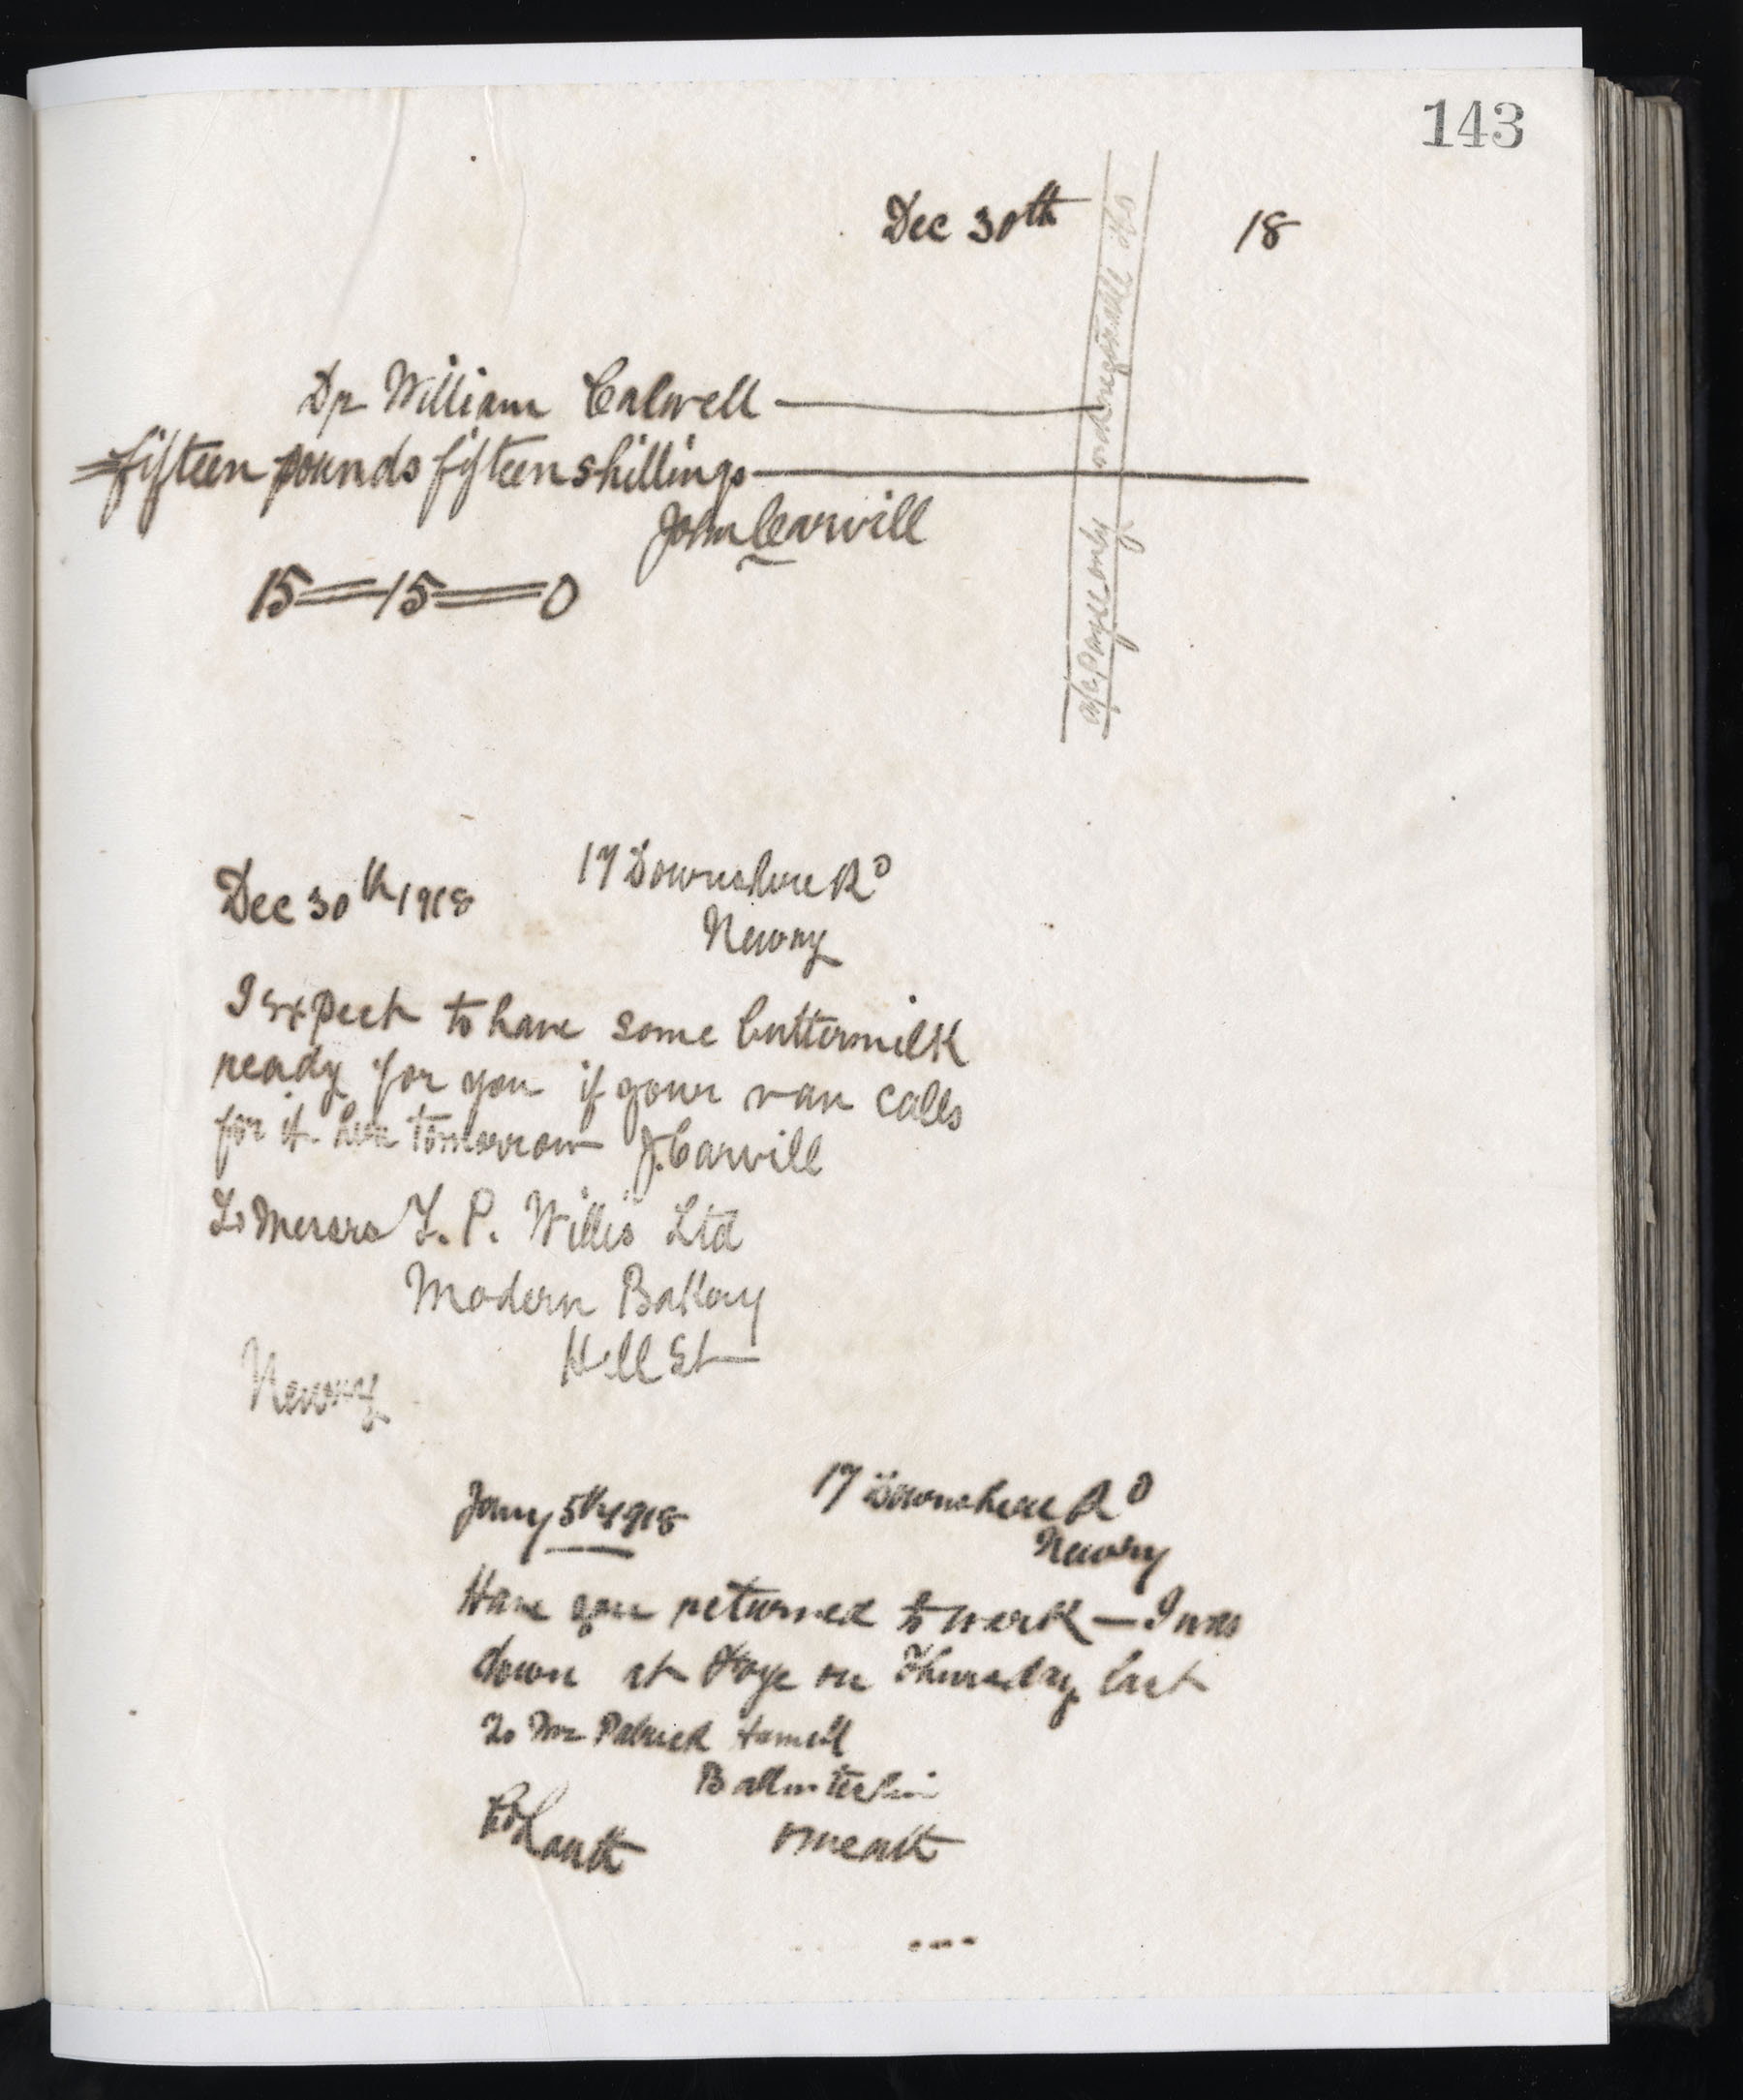 143
Dec 30th 18
Dr William Calwell
fifteen pounds fifteen shillings
John Carvill
15 = 15 = 0
a/c Payee only not negotiable
Dec 30th 1918 17 Downshire Rd
Newry
I expect to have some buttermilk
ready for you if your van calls
for it here tomorrow J. Carvill
To Messrs T. P. Willis Ltd
Modern Bakery
Hill St
Newry
Jany 5th 1918 17 Downshire Rd
Newry
Have you returned to work — I was
down at on Thursday last
To Mr Patrick
Co Louth Omeath